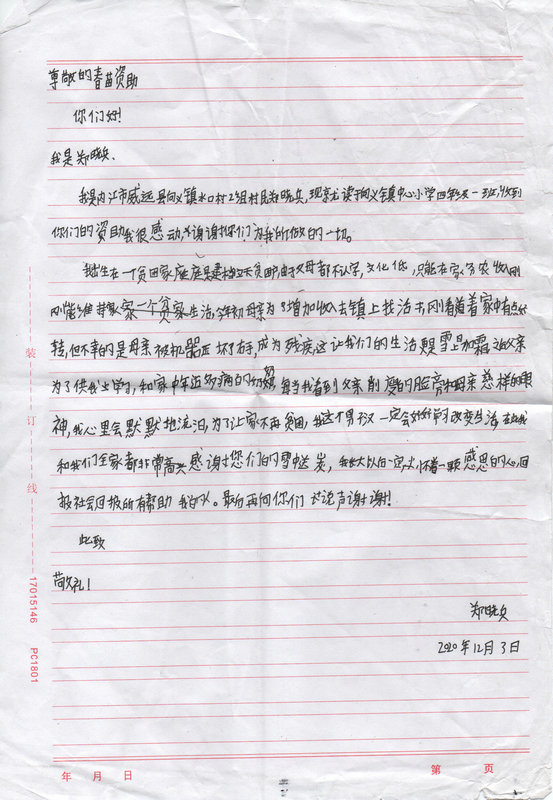 尊敬的春苗资助
你们好!
我是郑晓兵.
我是内江市威远县向义镇水口村2组村民郑晓兵,现就读于向义镇中心小学四年级一班,收到
你们的资助我很感动,谢谢你们为我所做的一切。
我出生在一个贫困家庭是建档立卡贫困户,由于父母都不认字,文化低,只能在家务农收入刚
刚能维持家一个贫家生活,今年初母亲为了增加收入去镇上找活干,刚看着家中有点好
转,但不幸的是母亲被机器压坏了右手,成为残疾这让我们的生活是雪上加霜,父亲
为了供我上学,和家中年迈多病的奶奶,每当我看到父亲削瘦的脸旁和母亲慈样的眼
神,我心里会默默地流泪,为了让家不再贫困,我这个男孩一定会好好学习改变生活,在此我
和我们全家都非常高兴感谢您们的雪中送炭,我长大以后一定怀着一颗感恩的心回
报社会回报所有帮助我的人。最后再向你们说声谢谢!
此致
敬礼!
郑晓兵
2020年12月3日
装
订
线
17015146 PC1801
年 月 日
第 页